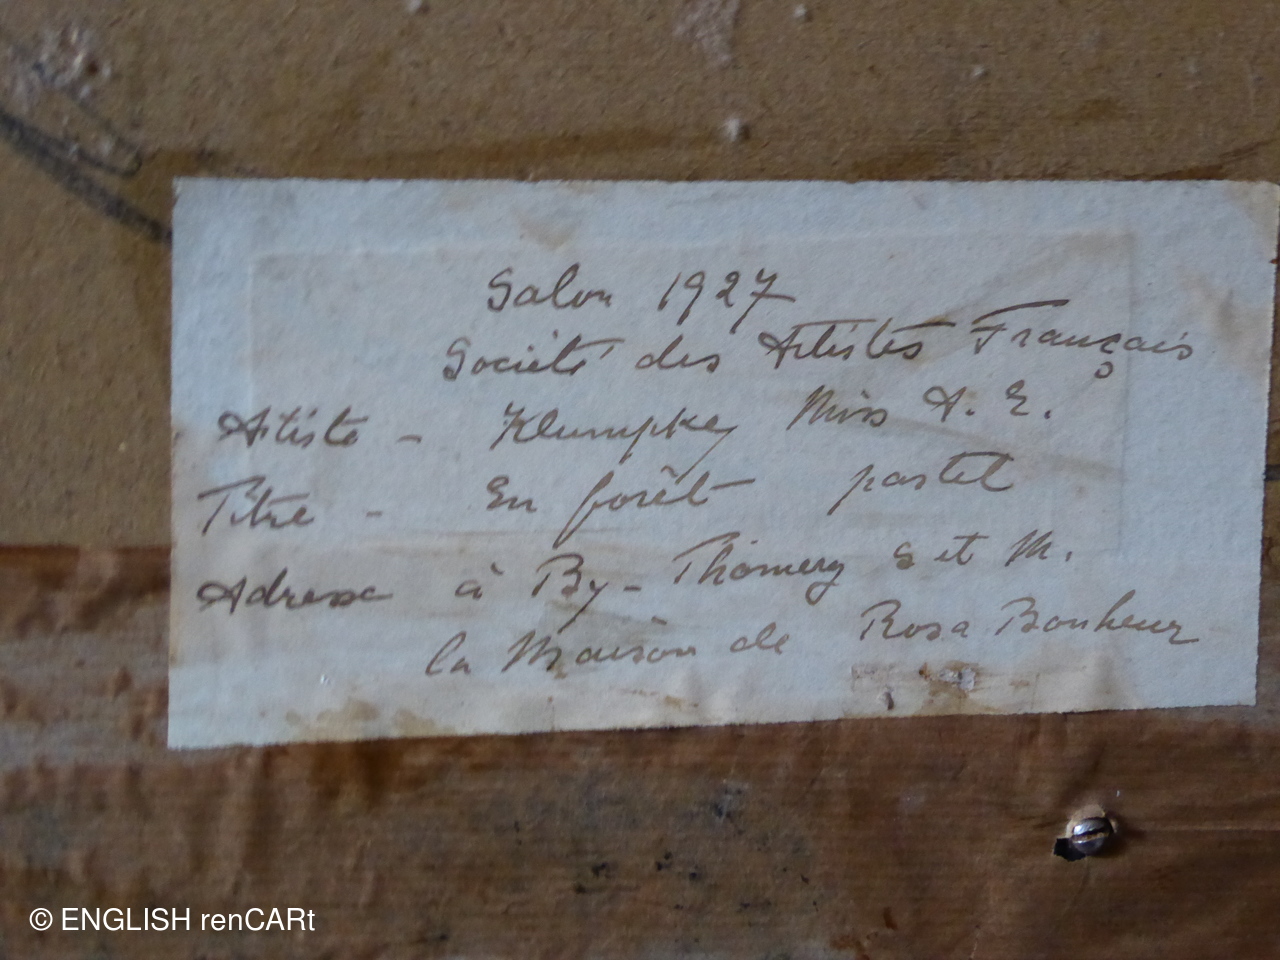 Salon 1927
Société des Artistes Français
Artiste - Klumpke Miss A. E.
Titre - En forêt pastel
Adresse à By - Thomery S et M.
la Maison de Rosa Bonheur
© ENGLISH renCARt